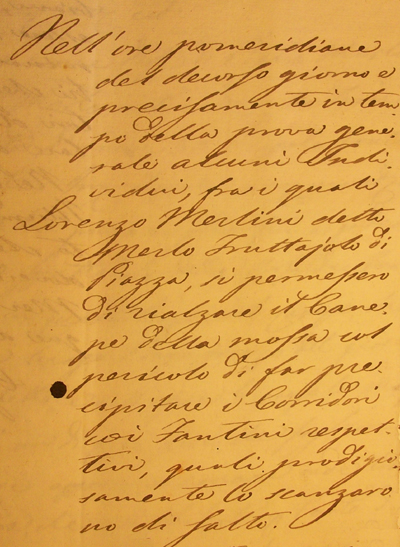 Nell'ore pomeridiane
del decorso giorno e
precisamente in tem-
po della prova gene-
rale alcuni Indi-
vidui, fra i quali
Lorenzo Merlini detto
Merlo Fruttajolo di
Piazza, si permessero
di rialzare il Cane-
pe della mossa col
pericolo di far pre-
cipitare i Corridori
coi Fantini respet-
tivi, quali prodigio-
samente lo scanzaro
no di salto.